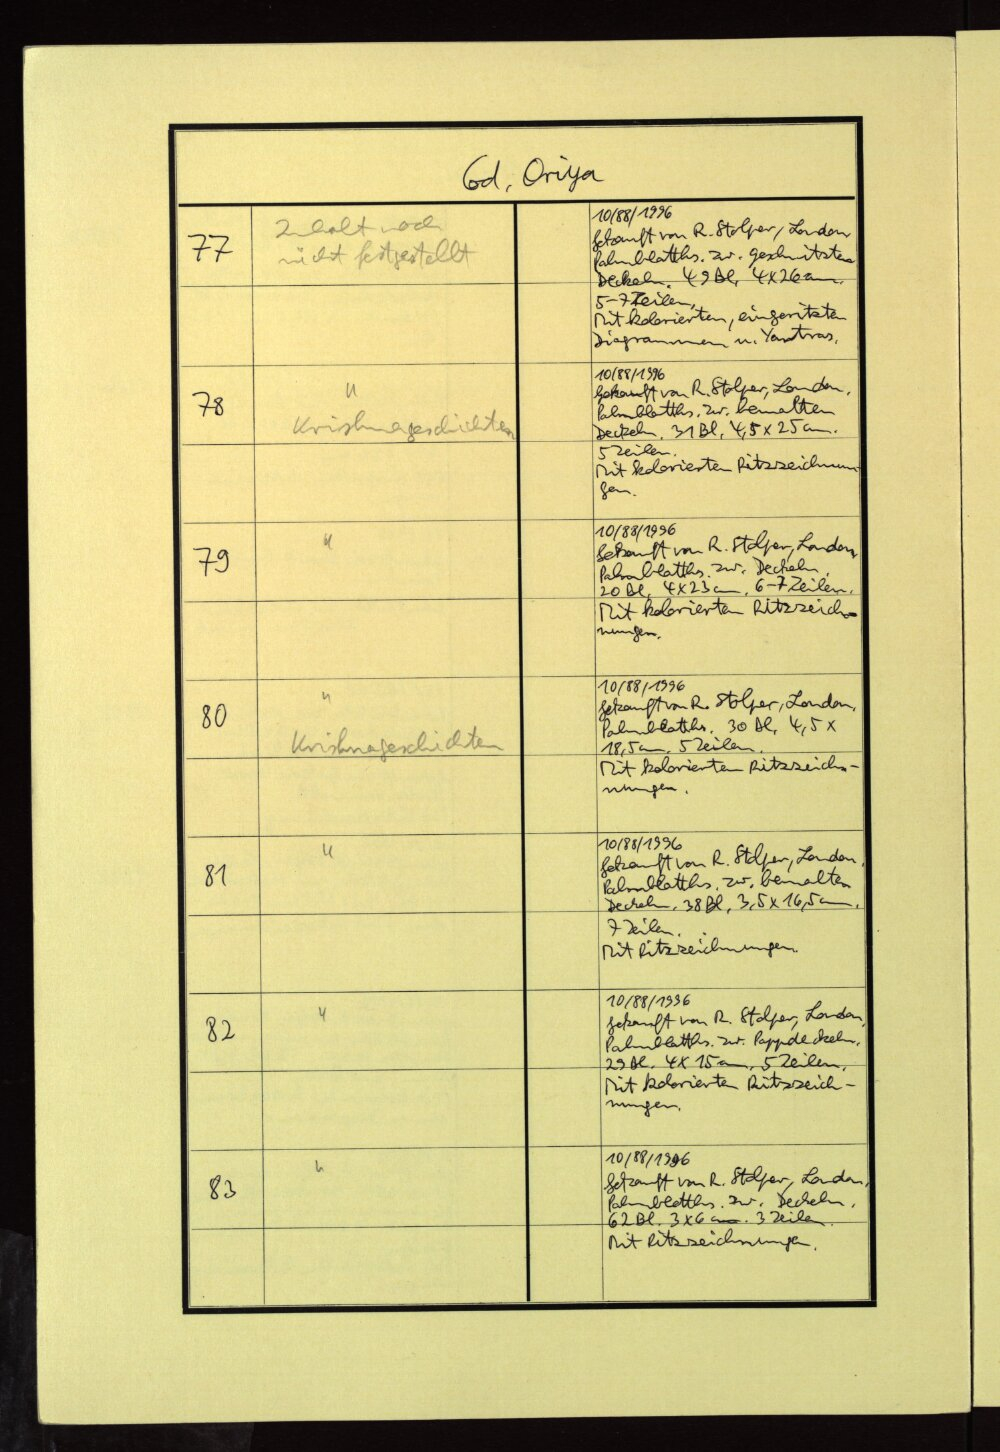 Cod. Oriya
77
Inhalt noch
nicht festgestellt
10/88/1996
Gekauft von R. Stolper, London
Palmblatths. zw. geschnitzten
Deckeln. 49 Bl. 4x26 cm.
5-7 Zeilen,
Mit kolorierten, eingeritzten
Diagrammen u. Yantras.
78
"
Krishnageschichten
10/88/1996
Gekauft von R. Stolper, London,
Palmblatths. zw. bemalten
Deckeln. 31 Bl. 4,5 x 25 cm.
5 Zeilen.
Mit kolorierten Ritzzeichnun-
gen.
79
"
10/88/1996
Gekauft von R. Stolper, London,
Palmblatths. zw. Deckeln.
20 Bl. 4x23 cm. 6-7 Zeilen.
Mit kolorierten Ritzzeich-
nungen.
80
"
Krishnageschichten
10/88/1996
Gekauft von R. Stolper, London,
Palmblatths. 30 Bl. 4,5 x
18,5 cm. 5 Zeilen.
Mit kolorierten Ritzzeich-
nungen.
81
"
10/88/1996
Gekauft von R. Stolper, London,
Palmblatths. zw. bemalten
Deckeln. 38 Bl. 3,5 x 16,5 cm.
7 Zeilen.
Mit Ritzzeichnungen.
82
"
10/88/1996
Gekauft von R. Stolper, London,
Palmblatths. zw. Pappdeckeln.
29 Bl. 4x15 cm. 5 Zeilen.
Mit kolorierten Ritzzeich-
nungen.
83
"
10/88/1996
Gekauft von R. Stolper, London,
Palmblatths. zw. Deckeln.
62 Bl. 3x6 cm. 3 Zeilen.
Mit Ritzzeichnungen.